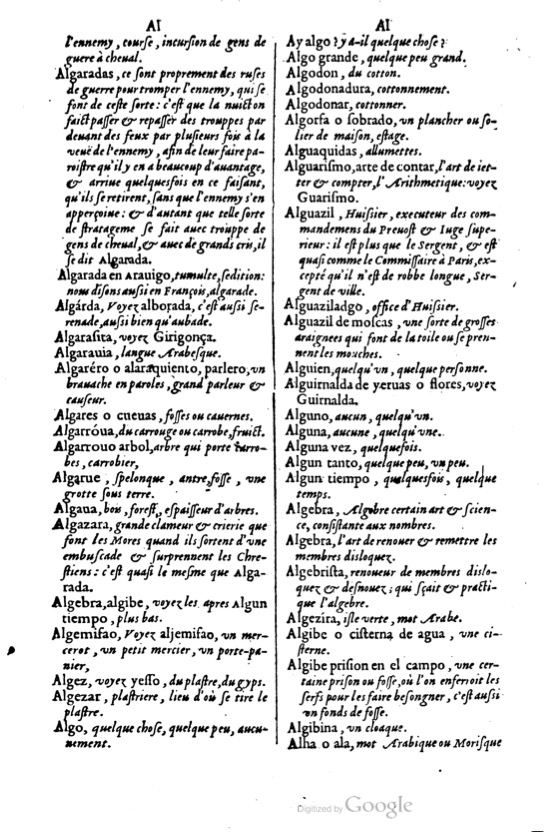 Al
l'ennemy, course, incursion de gens de
guerre à cheual.
Algaradas, ce sont proprement des ruses
de guerre pour tromper l'ennemy, qui se
font de ceste sorte: c'est que la nuict on
faict passer & repasser des trouppes par
deuant des feux par plusieurs fois à la
veuë de l'ennemy, afin de leur faire pa-
roistre qu'il y en a beaucoup d'auantage,
& arriue quelquesfois en ce faisant,
qu'ils se retirent, sans que l'ennemy s'en
apperçoiue: & d'autant que telle sorte
de stratageme se fait auec trouppe de
gens de cheual, & auec de grands cris, il
se dit Algarada.
Algarada en Arauigo, tumulte, sedition:
nous disons aussi en François, algarade.
Algárda, Voyez alborada, c'est aussi se-
renade, aussi bien qu'aubade.
Algarafita, voyez Girigonça.
Algarauia, langue Arabesque.
Algaréro o alaraquiento, parlero, vn
brauache en paroles, grand parleur &
causeur.
Algares o cueuas, fosses ou cauernes.
Algarróua, du carrouge ou carrobe, fruict.
Algarrouo arbol, arbre qui porte carro-
bes, carrobier,
Algarue, spelonque, antre, fosse, vne
grotte sous terre.
Algaua, bois, forest, espaisseur d'arbres.
Algazara, grande clameur & crierie que
font les Mores quand ils sortent d'vne
embuscade & surprennent les Chre-
stiens: c'est quasi le mesme que Alga-
rada.
Algebra, algibe, voyez les apres Algun
tiempo, plus bas.
Algemifao, Voyez aljemifao, vn mer-
cerot, vn petit mercier, vn porte-pa-
nier,
Algez, voyez yesso, du plastre, du gyps.
Algezar, plastriere, lieu d'où se tire le
plastre.
Algo, quelque chose, quelque peu, aucu-
nement.
Al
Ay algo? y a-il quelque chose?
Algo grande, quelque peu grand.
Algodon, du cotton.
Algodonadura, cottonnement.
Algodonar, cottonner.
Algorfa o sobrado, vn plancher ou so-
lier de maison, estage.
Alguaquidas, allumettes.
Alguarismo, arte de contar, l'art de iet-
ter & compter, l'Arithmetique: voyez
Guarismo.
Alguazil, Huissier, executeur des com-
mandemens du Preuost & Iuge supe-
rieur: il est plus que le Sergent, & est
quasi comme le Commissaire à Paris, ex-
cepté qu'il n'est de robbe longue, Ser-
gent de ville.
Alguaziladgo, office d'Huissier.
Alguazil de moscas, vne sorte de grosses
araignees qui font de la toile ou se pren-
nent les mouches.
Alguien, quelqu'vn, quelque personne.
Alguirnalda de yeruas o flores, voyez
Guirnalda.
Alguno, aucun, quelqu'vn.
Alguna, aucune, quelqu'vne.
Alguna vez, quelquefois.
Algun tanto, quelque peu, vn peu.
Algun tiempo, quelquesfois, quelque
temps.
Algebra, Algebre certain art & scien-
ce, consistante aux nombres.
Algebra, l'art de renouer & remettre les
membres disloquez.
Algebrista, renoueur de membres dislo-
quez & desnouez; qui sçait & practi-
que l'algebre.
Algezira, isle verte, mot Arabe.
Algibe o cisterna de agua, vne ci-
sterne.
Algibe prision en el campo, vne cer-
taine prison ou fosse, où l'on enferroit les
serfs pour les faire besongner, c'est aussi
vn fonds de fosse.
Algibina, vn cloaque.
Alha o ala, mot Arabique ou Morisque
Digitized by Google